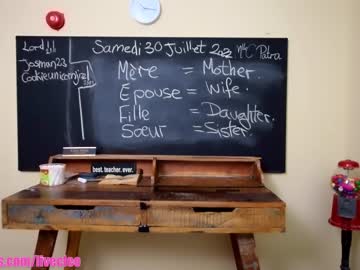 Lord
Josman23
Cookieunicorngirl
Samedi 30 Juillet 2022 MC Patra
Mère = Mother.
Epouse = Wife.
Fille = Daughter.
Sœur = Sister.
best. teacher. ever.
s.com/livecleo